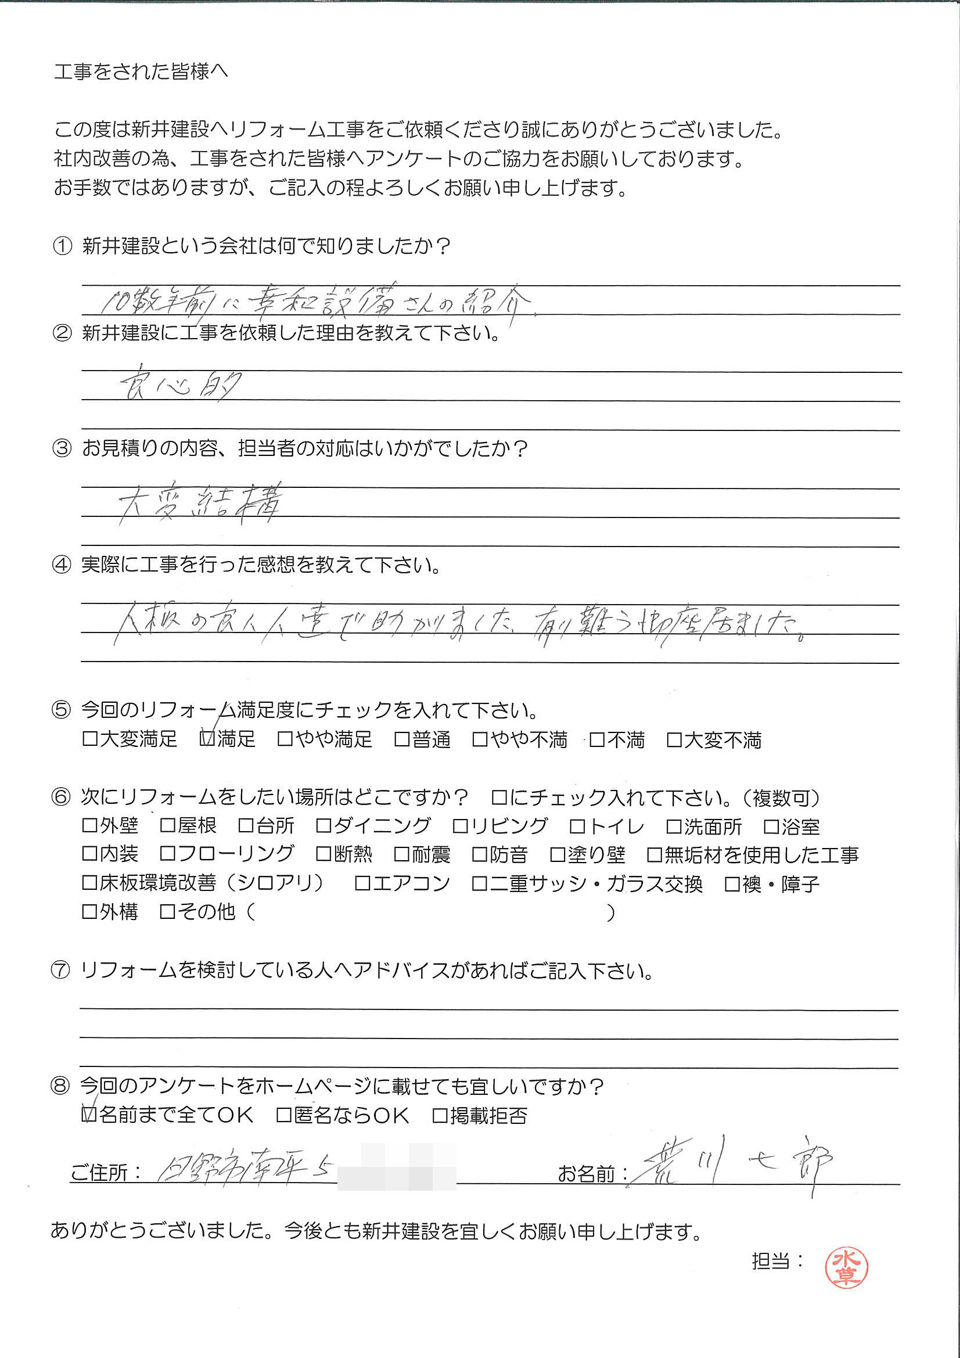 工事をされた皆様へ
この度は新井建設へリフォーム工事をご依頼くださり誠にありがとうございました。
社内改善の為、工事をされた皆様へアンケートのご協力をお願いしております。
お手数ではありますが、ご記入の程よろしくお願い申し上げます。
① 新井建設という会社は何で知りましたか？
10数年前に幸和設備さんの紹介.
② 新井建設に工事を依頼した理由を教えて下さい。
良心的
③ お見積りの内容、担当者の対応はいかがでしたか？
大変結構
④ 実際に工事を行った感想を教えて下さい。
人柄の良い人達で助かりました、有難う御座居ました。
⑤ 今回のリフォーム満足度にチェックを入れて下さい。
□大変満足 ☑満足 □やや満足 □普通 □やや不満 □不満 □大変不満
⑥ 次にリフォームをしたい場所はどこですか？ □にチェック入れて下さい。（複数可）
□外壁 □屋根 □台所 □ダイニング □リビング □トイレ □洗面所 □浴室
□内装 □フローリング □断熱 □耐震 □防音 □塗り壁 □無垢材を使用した工事
□床板環境改善（シロアリ） □エアコン □二重サッシ・ガラス交換 □襖・障子
□外構 □その他（ ）
⑦ リフォームを検討している人へアドバイスがあればご記入下さい。
⑧ 今回のアンケートをホームページに載せても宜しいですか？
☑名前まで全てOK □匿名ならOK □掲載拒否
ご住所： 日野市南平5 お名前： 荒川七郎
ありがとうございました。今後とも新井建設を宜しくお願い申し上げます。
担当： 水草